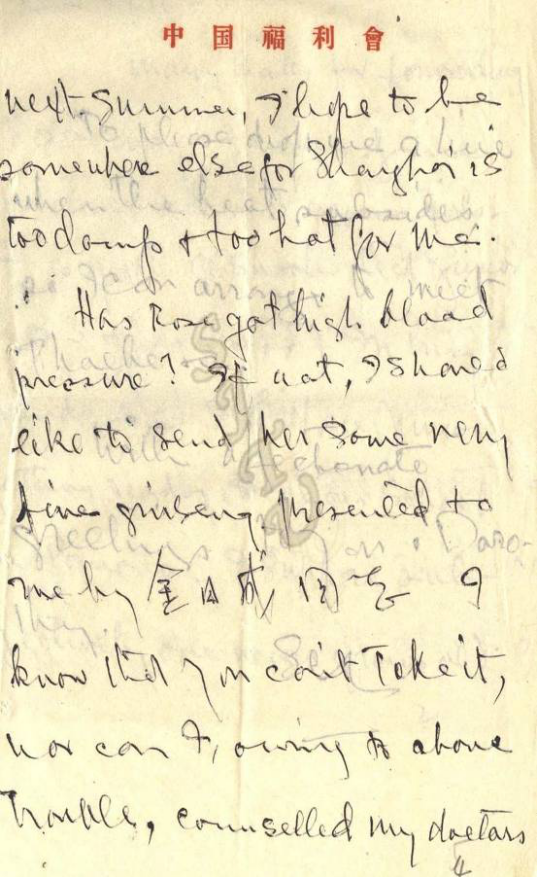 中国福利會
next summer, I hope to be
somewhere else for Shanghai is
too damp & too hot for me.
Has Rose got high blood
pressure? If not, I should
like to send her some very
fine ginseng, presented to
me by 金日成同志 I
know that you can't take it,
nor can I, owing to above
trouble, counselled my doctors
4